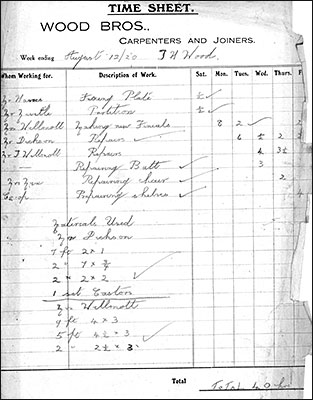 TIME SHEET.
WOOD BROS.,
CARPENTERS AND JOINERS.
Week ending August 12/20 J H Wood.
Whom Working for. Description of Work. Sat. Mon. Tues. Wed. Thurs. F
Fixing Plate ½
Partition ½
Willmott Making new Finials 8 2
Mr Dickson Repairs 6 2
Mr J Willmott Repairs 3½
Repairing Batt 3
Repairing chair 2
Shop Preparing shelves 4
Materials Used
Mr Dickson
7 ft 2 x 1
2 " 7 x ¾
2 " 2 x 2
1 set Easton
Mr Willmott
9 ft 4 x 3
5 ft 4½ x 3
2 " 2½ x 3
Total Total 40 h